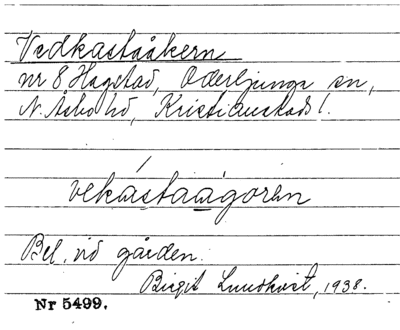 Vedkastaåkern
nr 8 Hagstad, Oderljunga sn,
N. Åsbo hd, Kristianstads l.
vekástaágorén
Bel. vid gården.
Birgit Lundkvist, 1938.
Nr 5499.